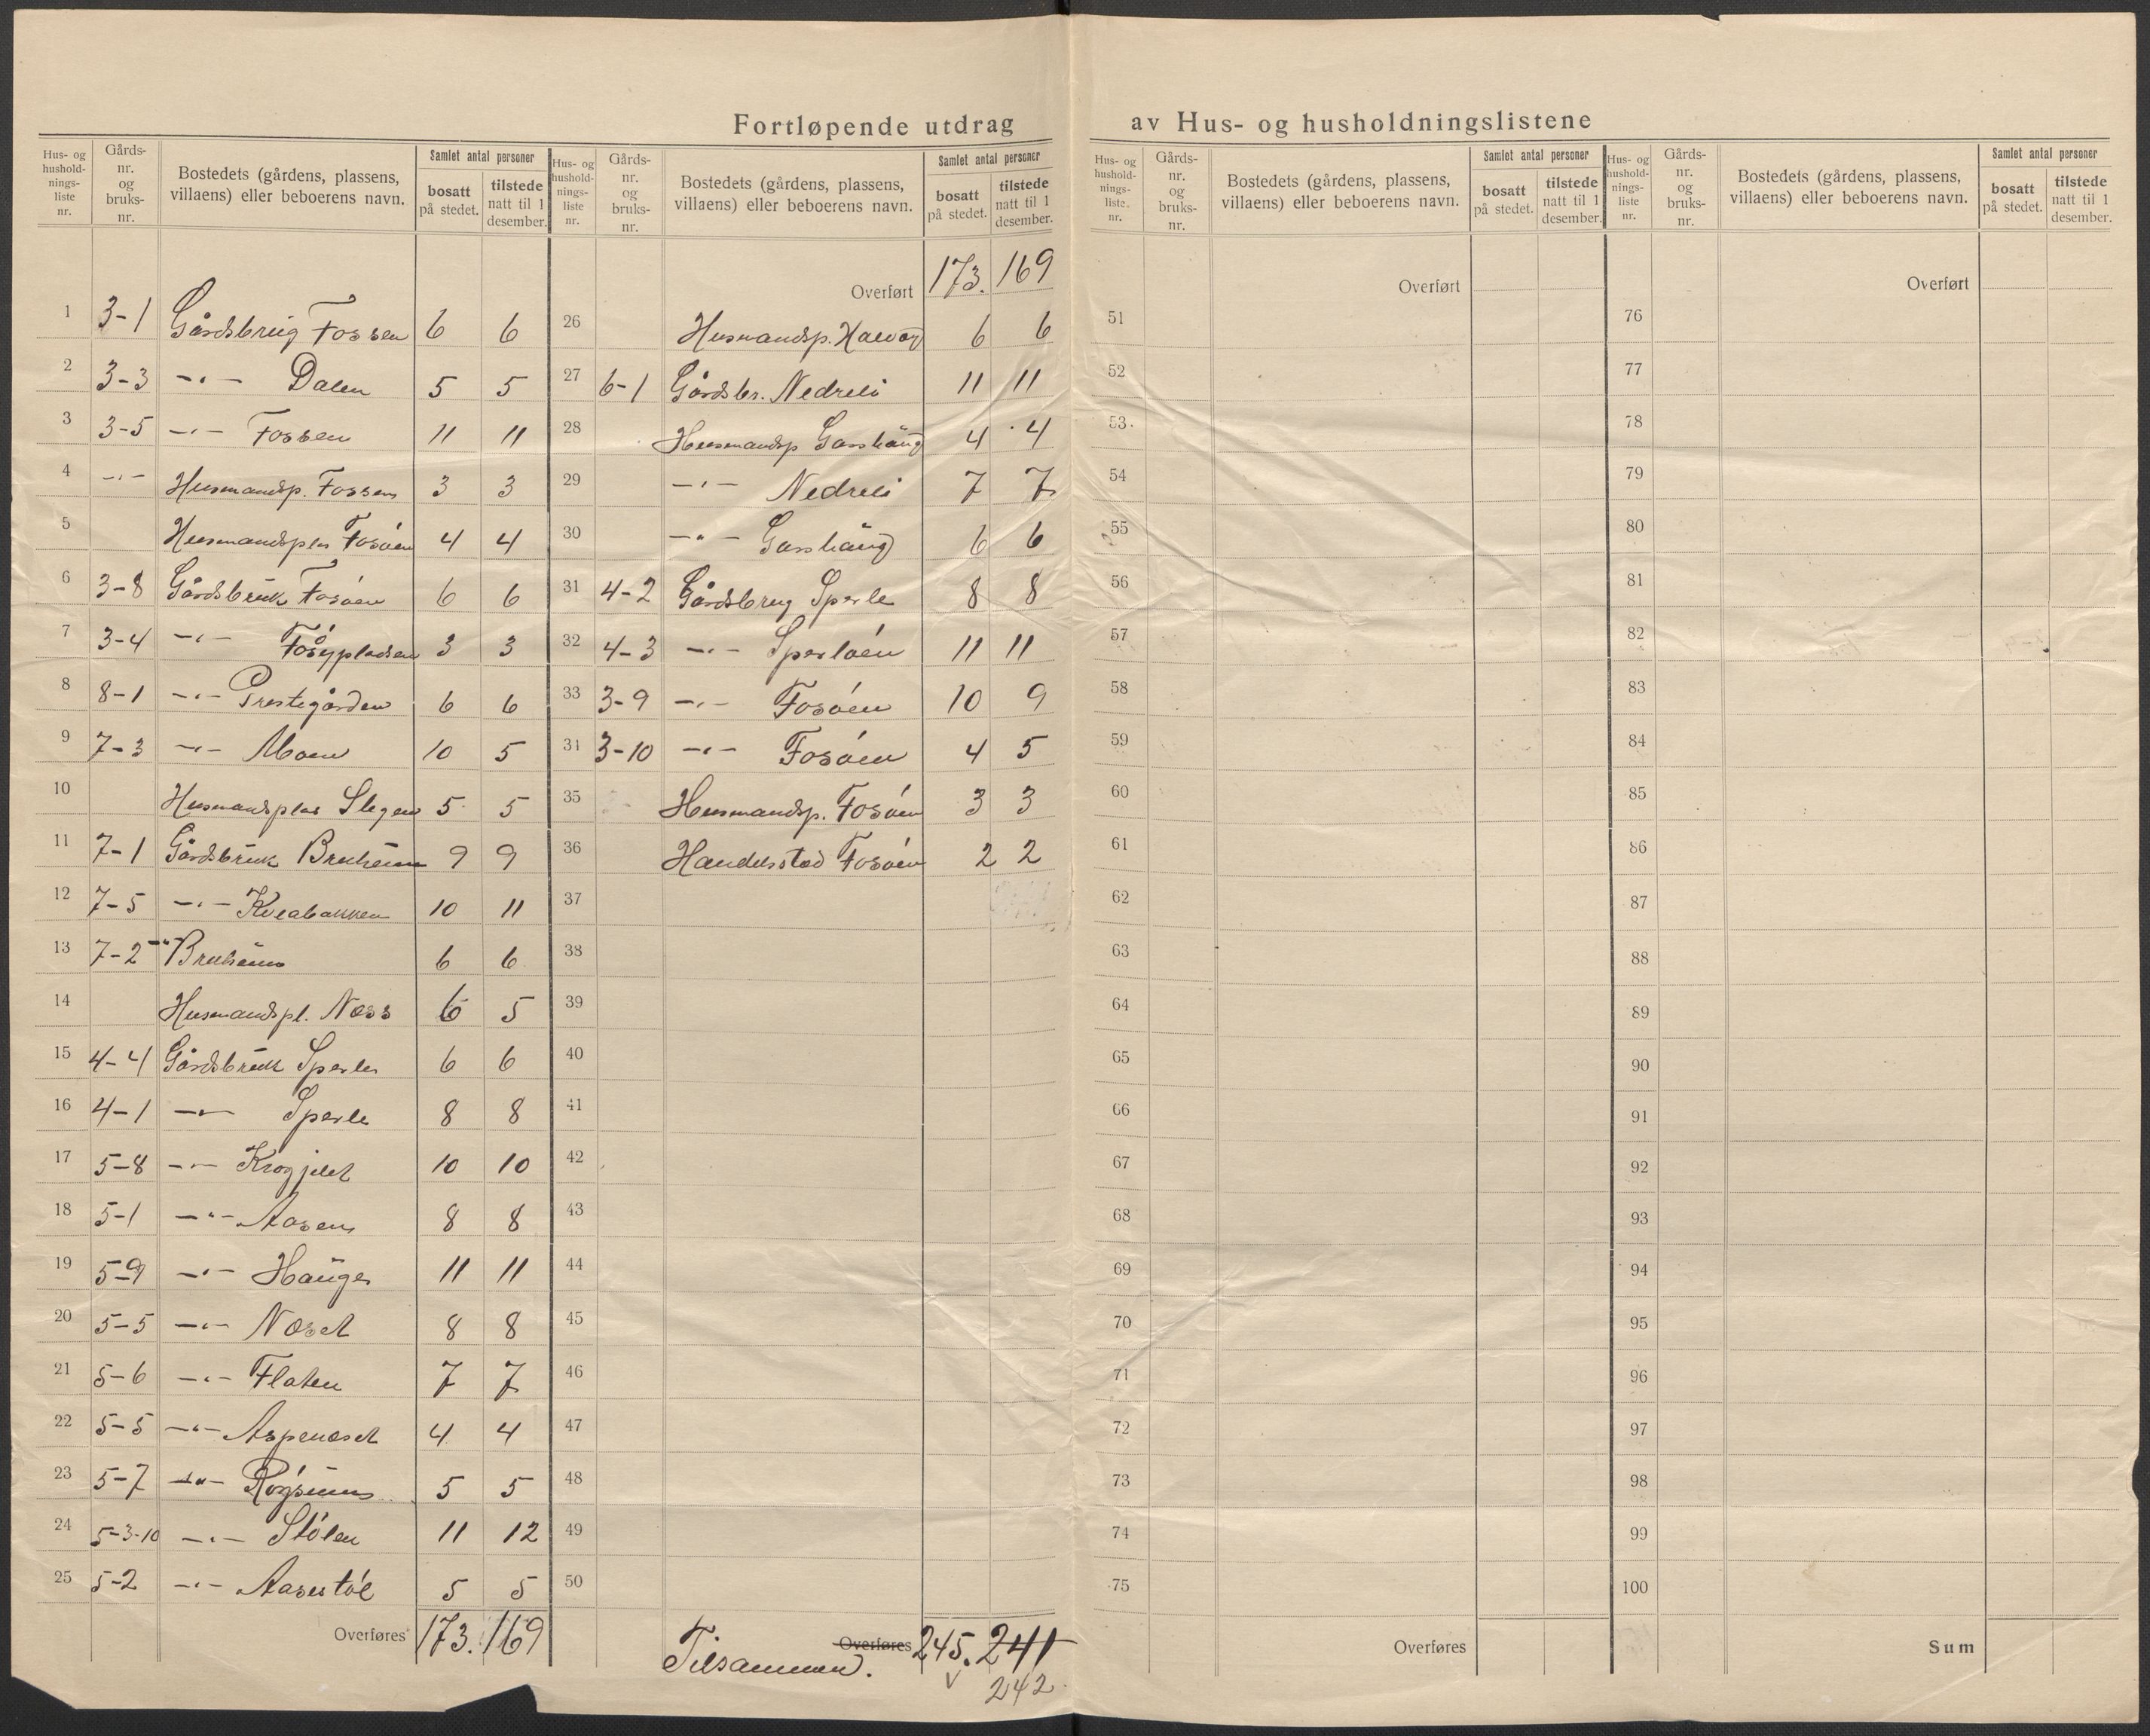 Fortløpende utdrag av Hus- og husholdningslistene
Hus- og hushold-nings-liste nr. Gårds-nr. og bruks-nr. Bostedets (gårdens, plassens, villaens) eller beboerens navn. Samlet antal personer bosatt på stedet. tilstede natt til 1 desember.
1 3-1 Gårdsbrug Fossen 6 6
2 3-3 -"- Dalen 5 5
3 3-5 -"- Fossen 11 11
4 -"- Husmandsp. Fossen 3 3
5 Husmandsplas Fosøen 4 4
6 3-8 Gårdsbruk Fosøen 6 6
7 3-4 -"- 3 3
8 8-1 -"- Prestegården 6 6
9 7-3 -"- Moen 10 5
10 Husmandsplas Slegen 5 5
11 7-1 Gårdsbruk Bruheim 9 9
12 7-5 -"- Kveabakken 10 11
13 7-2 -"- Bruheim 6 6
14 Husmandspl. Næss 6 5
15 4-4 Gårdsbruk Sperle 6 6
16 4-1 -"- Sperle 8 8
17 5-8 -"- Krogjelet 10 10
18 5-1 -"- Aasen 8 8
19 5-9 -"- Hauge 11 11
20 5-5 -"- Næset 8 8
21 5-6 -"- Flaten 7 7
22 5-5 -"- Aspenæset 4 4
23 5-7 -"- 5 5
24 5-3-10 -"- Stølen 11 12
25 5-2 -"- Aasestøl 5 5
Overføres 173. 169
Hus- og hushold-nings-liste nr. Gårds-nr. og bruks-nr. Bostedets (gårdens, plassens, villaens) eller beboerens navn. Samlet antal personer bosatt på stedet. tilstede natt til 1 desember.
Overført 173. 169
26 Husmandsp. 6 6
27 6-1 Gårdsbr. Nedreli 11 11
28 Husmandsp Gasshaug 4 4
29 -"- Nedreli 7 7
30 -"- Gasshaug 6 6
31 4-2 Gårdsbrug Sperle 8 8
32 4-3 -"- Sperløen 11 11
33 3-9 -"- Fosøen 10 9
31 3-10 -"- Fosøen 4 5
35 Husmandsp. Fosøen 3 3
36 Handelsstad Fosøen 2 2
37
38
39
40
41
42
43
44
45
46
47
48
49
50
Overføres 245. 241
Tilsammen.
242
Hus- og hushold-nings-liste. nr. Gårds-nr. og bruks-nr. Bostedets (gårdens, plassens, villaens) eller beboerens navn. Samlet antal personer bosatt på stedet. tilstede natt til 1 desember.
Overført
51
52
53
54
55
56
57
58
59
60
61
62
63
64
65
66
67
68
69
70
71
72
73
74
75
Overføres
Hus- og hushold-nings-liste nr. Gårds-nr. og bruks-nr. Bostedets (gårdens, plassens, villaens) eller beboerens navn. Samlet antal personer bosatt på stedet. tilstede natt til 1 desember.
Overført
76
77
78
79
80
81
82
83
84
85
86
87
88
89
90
91
92
93
94
95
96
97
98
99
100
Sum